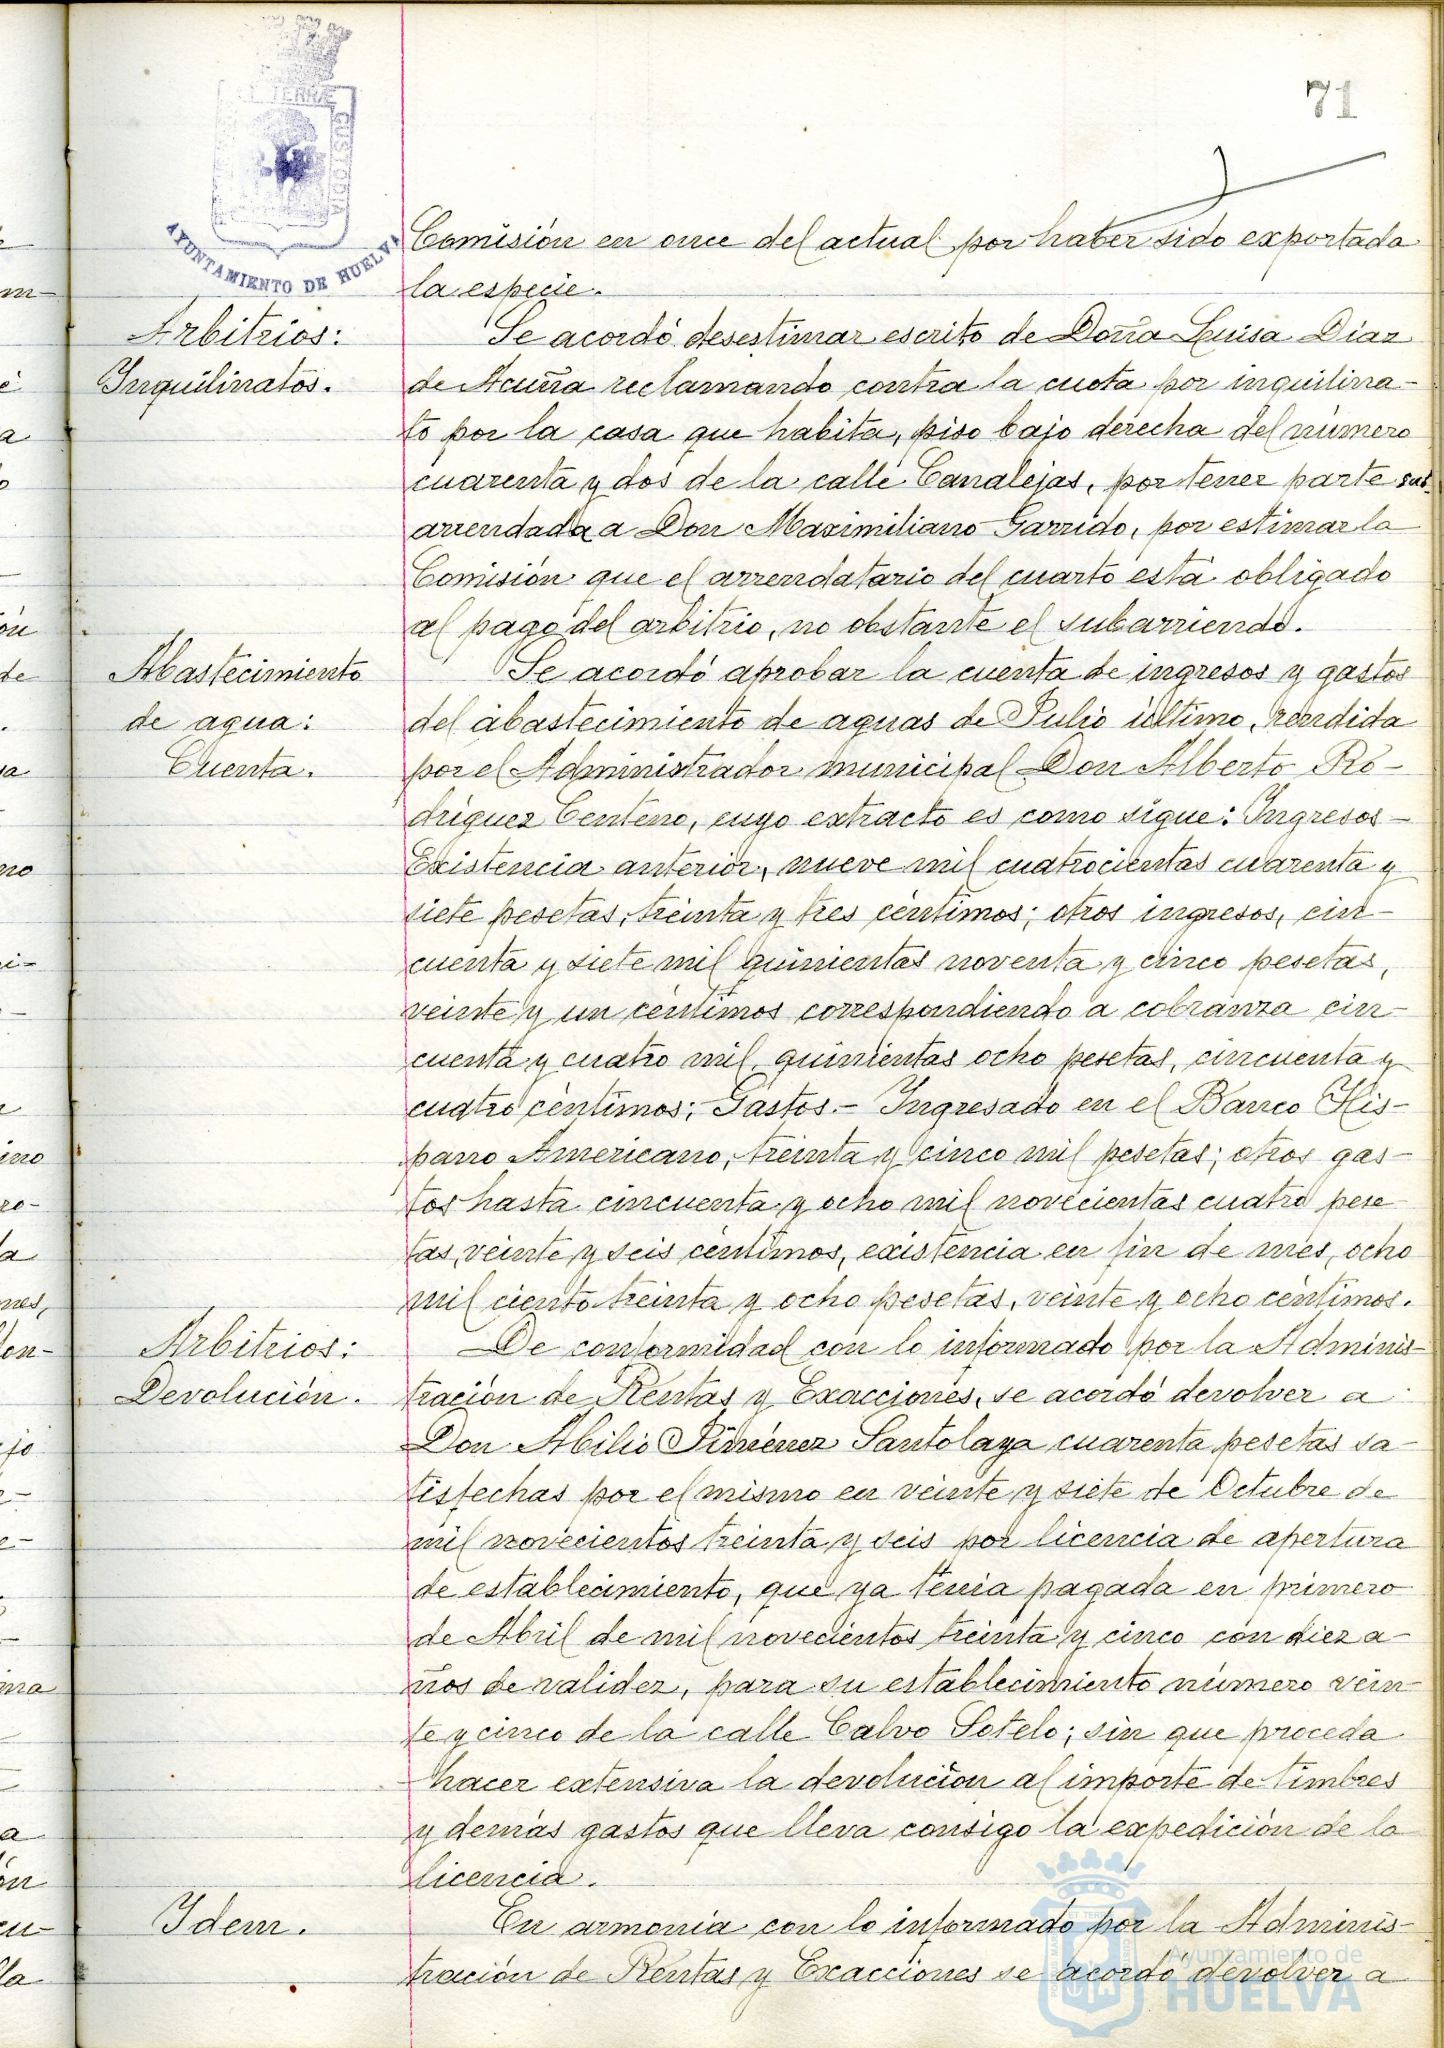 71
ET TERRÆ
CUSTODIA
AYUNTAMIENTO DE HUELVA
Comisión en once del actual por haber sido exportada
la especie.
Arbitrios:
Inquilinatos.
Se acordó desestimar escrito de Doña Luisa Diaz
de Acuña reclamando contra la cuota por inquilina-
to por la casa que habita, piso bajo derecha del número
cuarenta y dos de la calle Canalejas, por tener parte sub-
arrendada a Don Maximiliano Garrido, por estimar la
Comisión que el arrendatario del cuarto está obligado
al pago del arbitrio, no obstante el subarriendo.
Abastecimiento
de agua:
Cuenta.
Se acordó aprobar la cuenta de ingresos y gastos
del abastecimiento de aguas de Julio último, rendida
por el Administrador municipal Don Alberto Ro-
driguez Centeno, cuyo extracto es como sigue: Ingresos-
Existencia anterior, nueve mil cuatrocientas cuarenta y
siete pesetas, treinta y tres céntimos; otros ingresos, cin-
cuenta y siete mil quinientas noventa y cinco pesetas,
veinte y un céntimos correspondiendo a cobranza cin-
cuenta y cuatro mil, quinientas ocho pesetas, cincuenta y
cuatro céntimos; Gastos.- Ingresado en el Banco His-
pano Americano, treinta y cinco mil pesetas; otros gas-
tos hasta cincuenta y ocho mil novecientas cuatro pese
tas, veinte y seis céntimos, existencia en fin de mes, ocho
mil ciento treinta y ocho pesetas, veinte y ocho céntimos.
Arbitrios:
Devolución.
De conformidad con lo informado por la Adminis-
tración de Rentas y Exacciones, se acordó devolver a
Don Abilio Jiménez Santolaya cuarenta pesetas sa-
tisfechas por el mismo en veinte y siete de Octubre de
mil novecientos treinta y seis por licencia de apertura
de establecimiento, que ya tenia pagada en primero
de Abril de mil novecientos treinta y cinco con diez a-
ños de validez, para su establecimiento número vein-
te y cinco de la calle Calvo Sotelo; sin que proceda
hacer extensiva la devolución al importe de timbres
y demás gastos que lleva consigo la expedición de la
licencia.
Idem.
En armonia con lo informado por la Adminis-
tración de Rentas y Exacciones se acordó devolver a
Ayuntamiento de
HUELVA